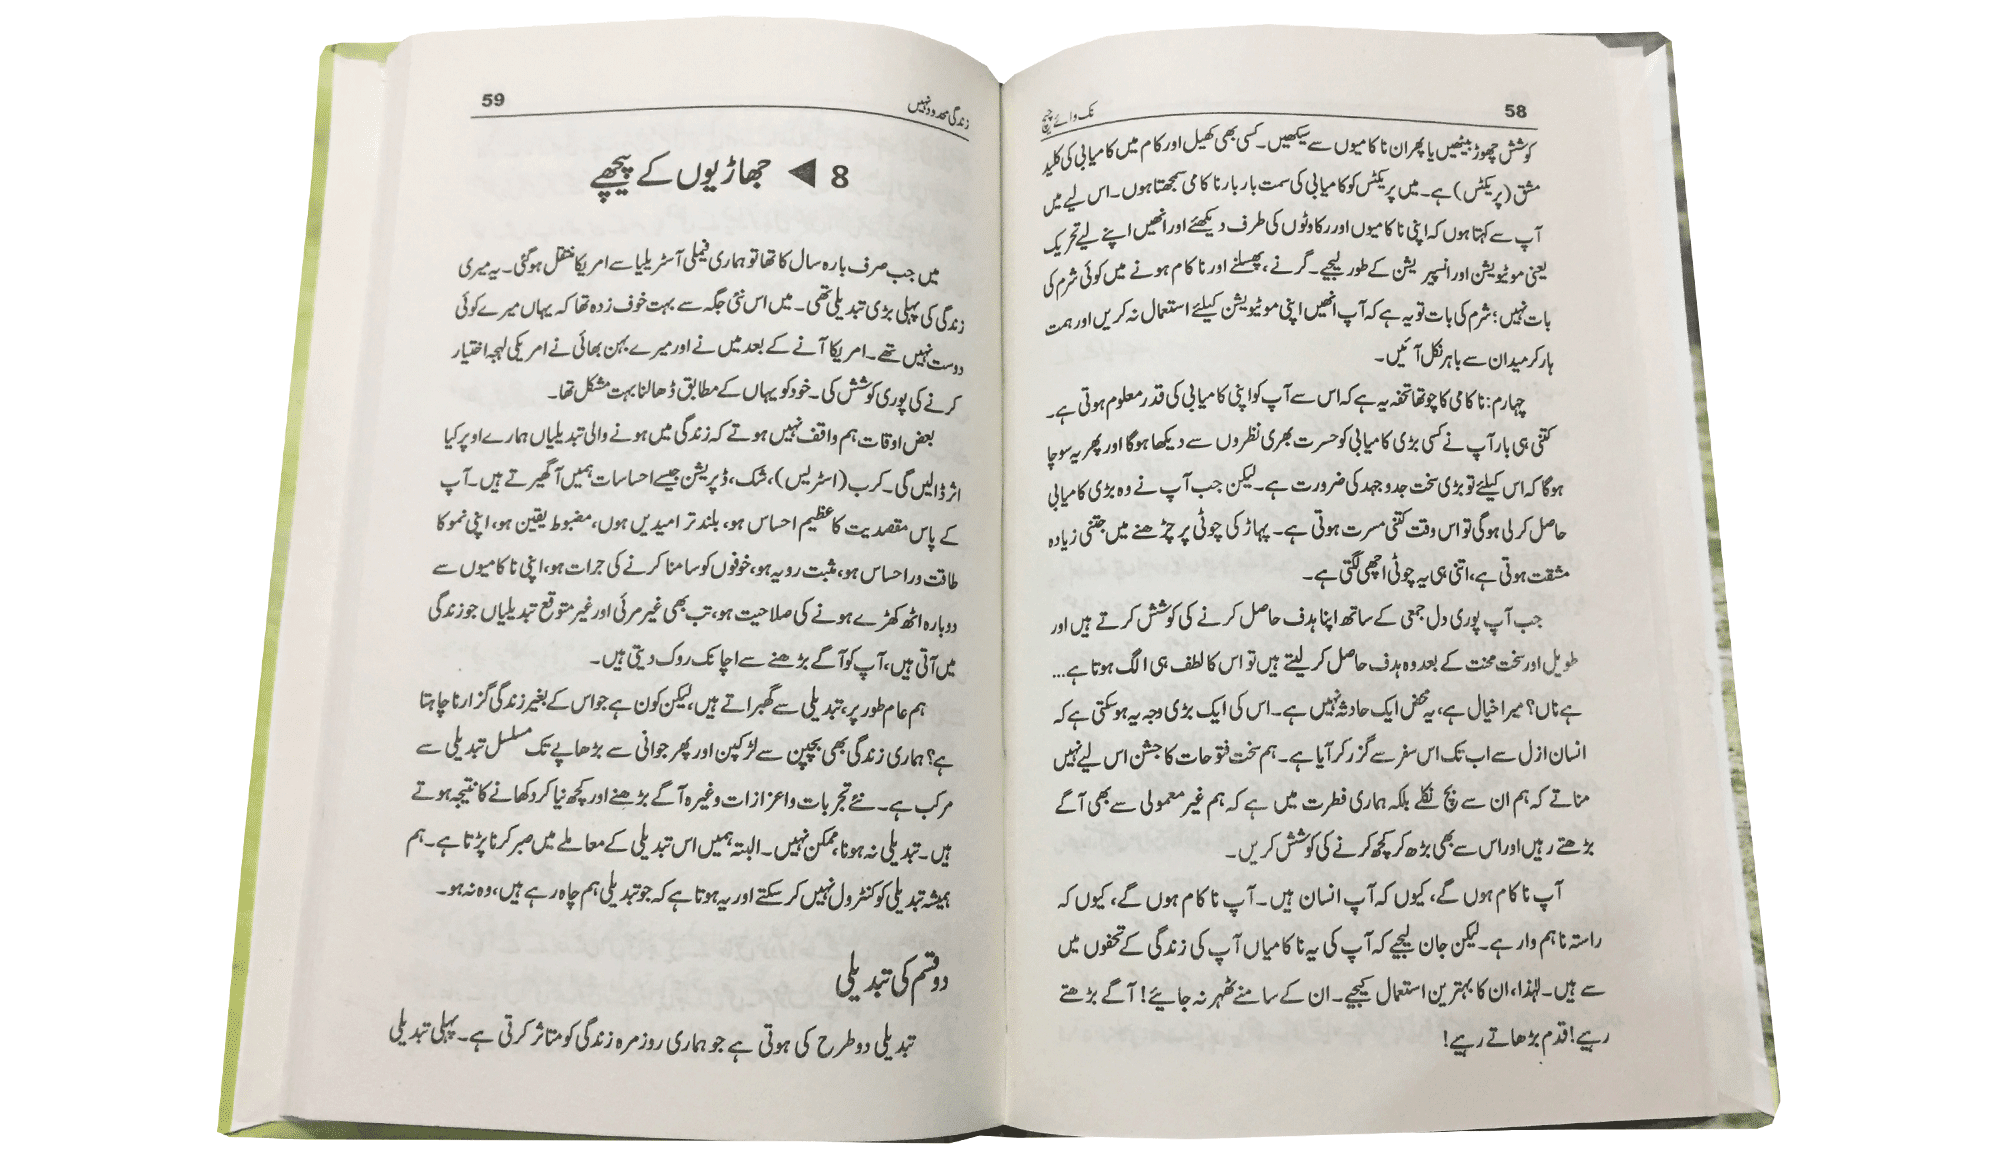 58
نک وائے چچ
کوشش چھوڑ بیٹھیں یا پھر ان ناکامیوں سے سیکھیں۔ کسی بھی کھیل اور کام میں کامیابی کی کلید
مشق (پریکٹس) ہے۔ میں پریکٹس کو کامیابی کی سمت بار بار ناکامی سمجھتا ہوں۔ اس لیے میں
آپ سے کہتا ہوں کہ اپنی ناکامیوں اور رکاوٹوں کی طرف دیکھئے اور انھیں اپنے لیے تحریک
یعنی موٹیویشن اور انسپریشن کے طور لیجیے۔ گرنے، پھسلنے اور ناکام ہونے میں کوئی شرم کی
بات نہیں؛ شرم کی بات تو یہ ہے کہ آپ انھیں اپنی موٹیویشن کیلئے استعمال نہ کریں اور ہمت
ہار کر میدان سے باہر نکل آئیں۔
چہارم: ناکامی کا چوتھا تحفہ یہ ہے کہ اس سے آپ کو اپنی کامیابی کی قدر معلوم ہوتی ہے۔
کتنی ہی بار آپ نے کسی بڑی کامیابی کو حسرت بھری نظروں سے دیکھا ہوگا اور پھر یہ سوچا
ہوگا کہ اس کیلئے تو بڑی سخت جدوجہد کی ضرورت ہے۔ لیکن جب آپ نے وہ بڑی کامیابی
حاصل کر لی ہوگی تو اس وقت کتنی مسرت ہوتی ہے۔ پہاڑ کی چوٹی پر چڑھنے میں جتنی زیادہ
مشقت ہوتی ہے، اتنی ہی یہ چوٹی اچھی لگتی ہے۔
جب آپ پوری دل جمعی کے ساتھ اپنا ہدف حاصل کرنے کی کوشش کرتے ہیں اور
طویل اور سخت محنت کے بعد وہ ہدف حاصل کر لیتے ہیں تو اس کا لطف ہی الگ ہوتا ہے...
ہے ناں؟ میرا خیال ہے، یہ محض ایک حادثہ نہیں ہے۔ اس کی ایک بڑی وجہ یہ ہو سکتی ہے کہ
انسان ازل سے اب تک اس سفر سے گزر کر آیا ہے۔ ہم سخت فتوحات کا جشن اس لیے نہیں
مناتے کہ ہم ان سے بچ نکلے بلکہ ہماری فطرت میں ہے کہ ہم غیر معمولی سے بھی آگے
بڑھتے رہیں اور اس سے بھی بڑھ کر کچھ کرنے کی کوشش کریں۔
آپ ناکام ہوں گے، کیوں کہ آپ انسان ہیں۔ آپ ناکام ہوں گے، کیوں کہ
راستہ ناہم وار ہے۔ لیکن جان لیجیے کہ آپ کی یہ ناکامیاں آپ کی زندگی کے تحفوں میں
سے ہیں۔ لہٰذا، ان کا بہترین استعمال کیجیے۔ ان کے سامنے ٹھہر نہ جائیے! آگے بڑھتے
رہیے! قدم بڑھاتے رہیے!
زندگی محدود نہیں
59
8 ◀ جھاڑیوں کے پیچھے
میں جب صرف بارہ سال کا تھا تو ہماری فیملی آسٹریلیا سے امریکا منتقل ہوگئی۔ یہ میری
زندگی کی پہلی بڑی تبدیلی تھی۔ میں اس نئی جگہ سے بہت خوف زدہ تھا کہ یہاں میرے کوئی
دوست نہیں تھے۔ امریکا آنے کے بعد میں نے اور میرے بہن بھائی نے امریکی لہجہ اختیار
کرنے کی پوری کوشش کی۔ خود کو یہاں کے مطابق ڈھالنا بہت مشکل تھا۔
بعض اوقات ہم واقف نہیں ہوتے کہ زندگی میں ہونے والی تبدیلیاں ہمارے اوپر کیا
اثر ڈالیں گی۔ کرب (اسٹریس)، شک، ڈپریشن جیسے احساسات ہمیں آگھیرتے ہیں۔ آپ
کے پاس مقصدیت کا عظیم احساس ہو، بلند تر امیدیں ہوں، مضبوط یقین ہو، اپنی نمو کا
طاقت ور احساس ہو، مثبت رویہ ہو، خوفوں کو سامنا کرنے کی جرات ہو، اپنی ناکامیوں سے
دوبارہ اٹھ کھڑے ہونے کی صلاحیت ہو، تب بھی غیر مرئی اور غیر متوقع تبدیلیاں جو زندگی
میں آتی ہیں، آپ کو آگے بڑھنے سے اچانک روک دیتی ہیں۔
ہم عام طور پر، تبدیلی سے گھبراتے ہیں، لیکن کون ہے جو اس کے بغیر زندگی گزارنا چاہتا
ہے؟ ہماری زندگی بھی بچپن سے لڑکپن اور پھر جوانی سے بڑھاپے تک مسلسل تبدیلی سے
مرکب ہے۔ نئے تجربات و اعزازات وغیرہ آگے بڑھنے اور کچھ نیا کر دکھانے کا نتیجہ ہوتے
ہیں۔ تبدیلی نہ ہونا، ممکن نہیں۔ البتہ ہمیں اس تبدیلی کے معاملے میں صبر کرنا پڑتا ہے۔ ہم
ہمیشہ تبدیلی کو کنٹرول نہیں کر سکتے اور یہ ہوتا ہے کہ جو تبدیلی ہم چاہ رہے ہیں، وہ نہ ہو۔
دو قسم کی تبدیلی
تبدیلی دو طرح کی ہوتی ہے جو ہماری روزمرہ زندگی کو متاثر کرتی ہے۔ پہلی تبدیلی